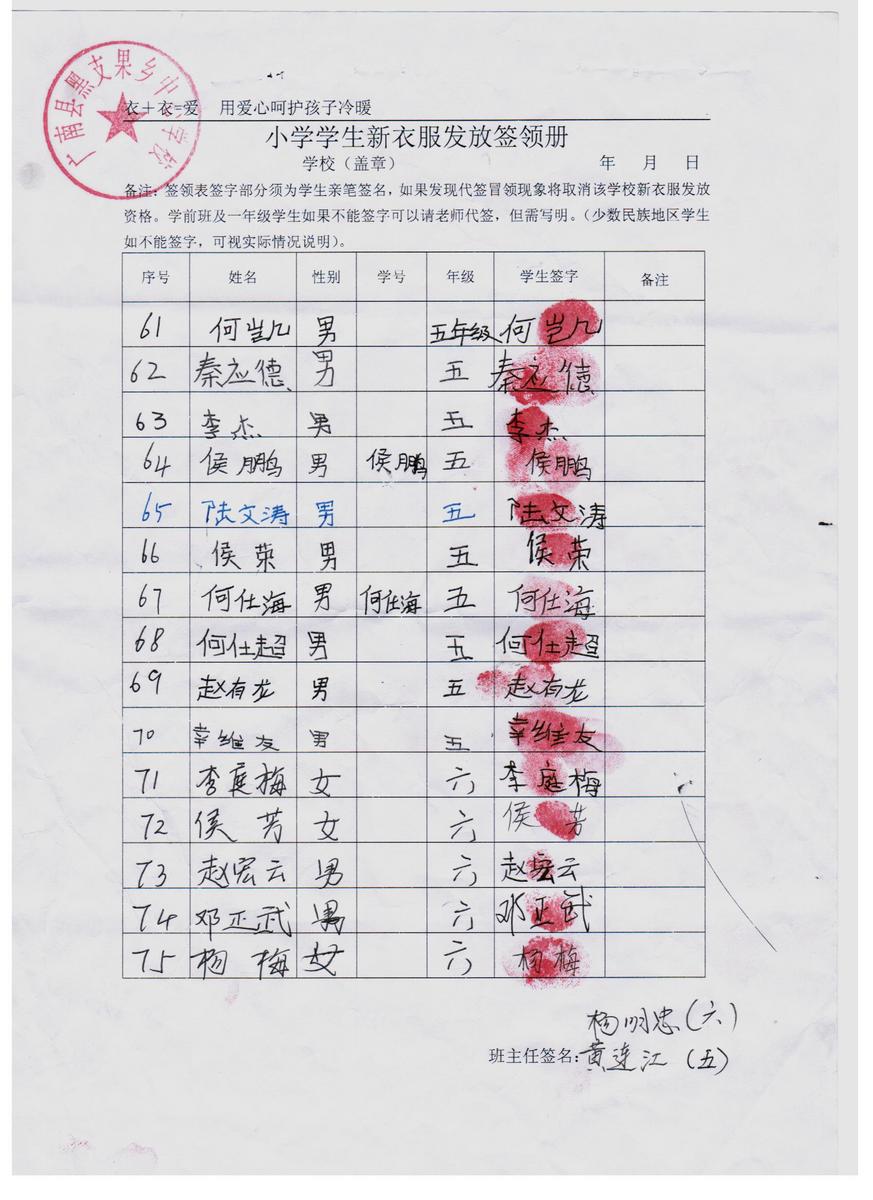 广南县黑支果乡中心学校
衣＋衣=爱 用爱心呵护孩子冷暖
小学学生新衣服发放签领册
学校（盖章） 年 月 日
备注：签领表签字部分须为学生亲笔签名，如果发现代签冒领现象将取消该学校新衣服发放
资格。学前班及一年级学生如果不能签字可以请老师代签，但需写明。（少数民族地区学生
如不能签字，可视实际情况说明）。
序号 姓名 性别 学号 年级 学生签字 备注
61 何岂凡 男 五年级 何岂凡
62 秦应德 男 五 秦应德
63 李杰 男 五 李杰
64 侯鹏 男 侯鹏 五 侯鹏
65 陆文涛 男 五 陆文涛
66 侯荣 男 五 侯荣
67 何仕海 男 何仕海 五 何仕海
68 何仕超 男 五 何仕超
69 赵有龙 男 五 赵有龙
70 维友 男 五 维友
71 李庭梅 女 六 李庭梅
72 侯芳 女 六 侯芳
73 赵宏云 男 六 赵宏云
74 邓正武 男 六 邓正武
75 杨梅 女 六 杨梅
杨明忠（六）
班主任签名：黄连江（五）